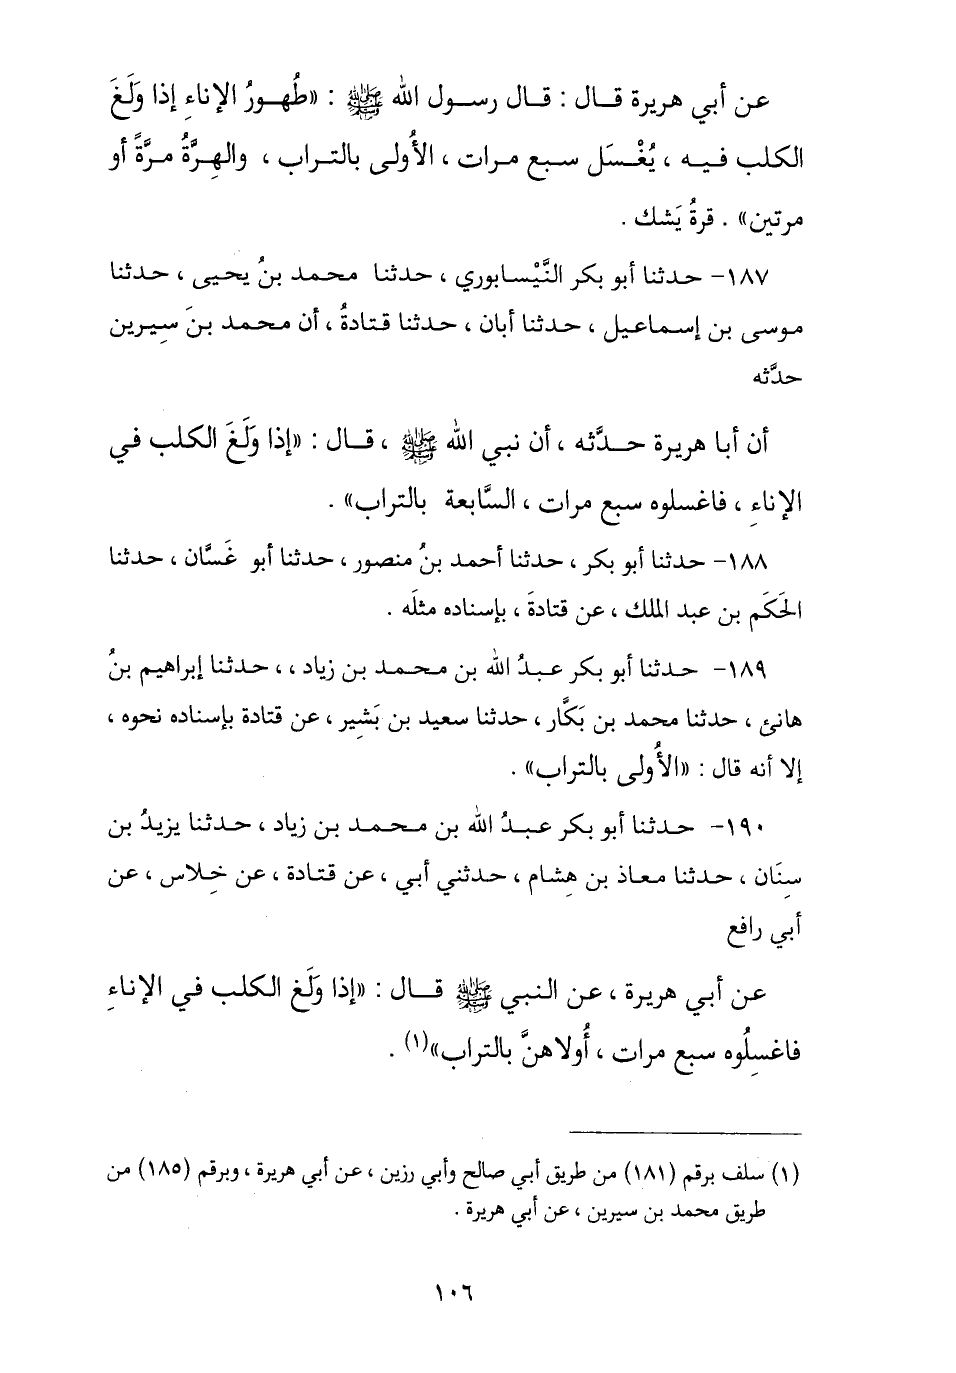 عن أبي هريرة قال : قال رسول الله ﷺ : «طُهورُ الإناءِ إذا وَلَغَ
الكلب فيه ، يُغْسَل سبع مرات ، الأُولى بالتراب ، والهِرَّةُ مرَّةً أو
مرتين» . قرةُ يَشك .
١٨٧- حدثنا أبو بكر النَّيْسابوري ، حدثنا محمد بنُ يحيى ، حدثنا
موسى بن إسماعيل ، حدثنا أبان ، حدثنا قتادةُ ، أن محمد بنَ سِيرين
حدَّثه
أن أبا هريرة حدَّثه ، أن نبي الله ﷺ ، قال : «إذا وَلَغَ الكلب في
الإناءِ ، فاغسلوه سبع مرات ، السَّابعة بالتراب» .
١٨٨- حدثنا أبو بكر ، حدثنا أحمد بنُ منصور ، حدثنا أبو غَسَّان ، حدثنا
الحَكَم بن عبد الملك ، عن قتادةَ ، بإسناده مثلَه .
١٨٩- حدثنا أبو بكر عبدُ الله بن محمد بن زياد ، ، حدثنا إبراهيم بنُ
هانئ ، حدثنا محمد بن بَكَّار ، حدثنا سعيد بن بَشِير ، عن قتادة بإسناده نحوه ،
إلا أنه قال : «الأُولى بالتراب» .
١٩٠- حدثنا أبو بكر عبدُ الله بن محمد بن زياد ، حدثنا يزيدُ بن
سِنَان ، حدثنا معاذ بن هِشام ، حدثني أبي ، عن قتادة ، عن خِلاس ، عن
أبي رافع
عن أبي هريرة ، عن النبي ﷺ قال : «إذا وَلَغ الكلب في الإناءِ
فاغسِلُوه سبع مرات ، أُولاهنَّ بالتراب»(١) .
(١) سلف برقم (١٨١) من طريق أبي صالح وأبي رزين ، عن أبي هريرة ، وبرقم (١٨٥) من
طريق محمد بن سيرين ، عن أبي هريرة .
١٠٦